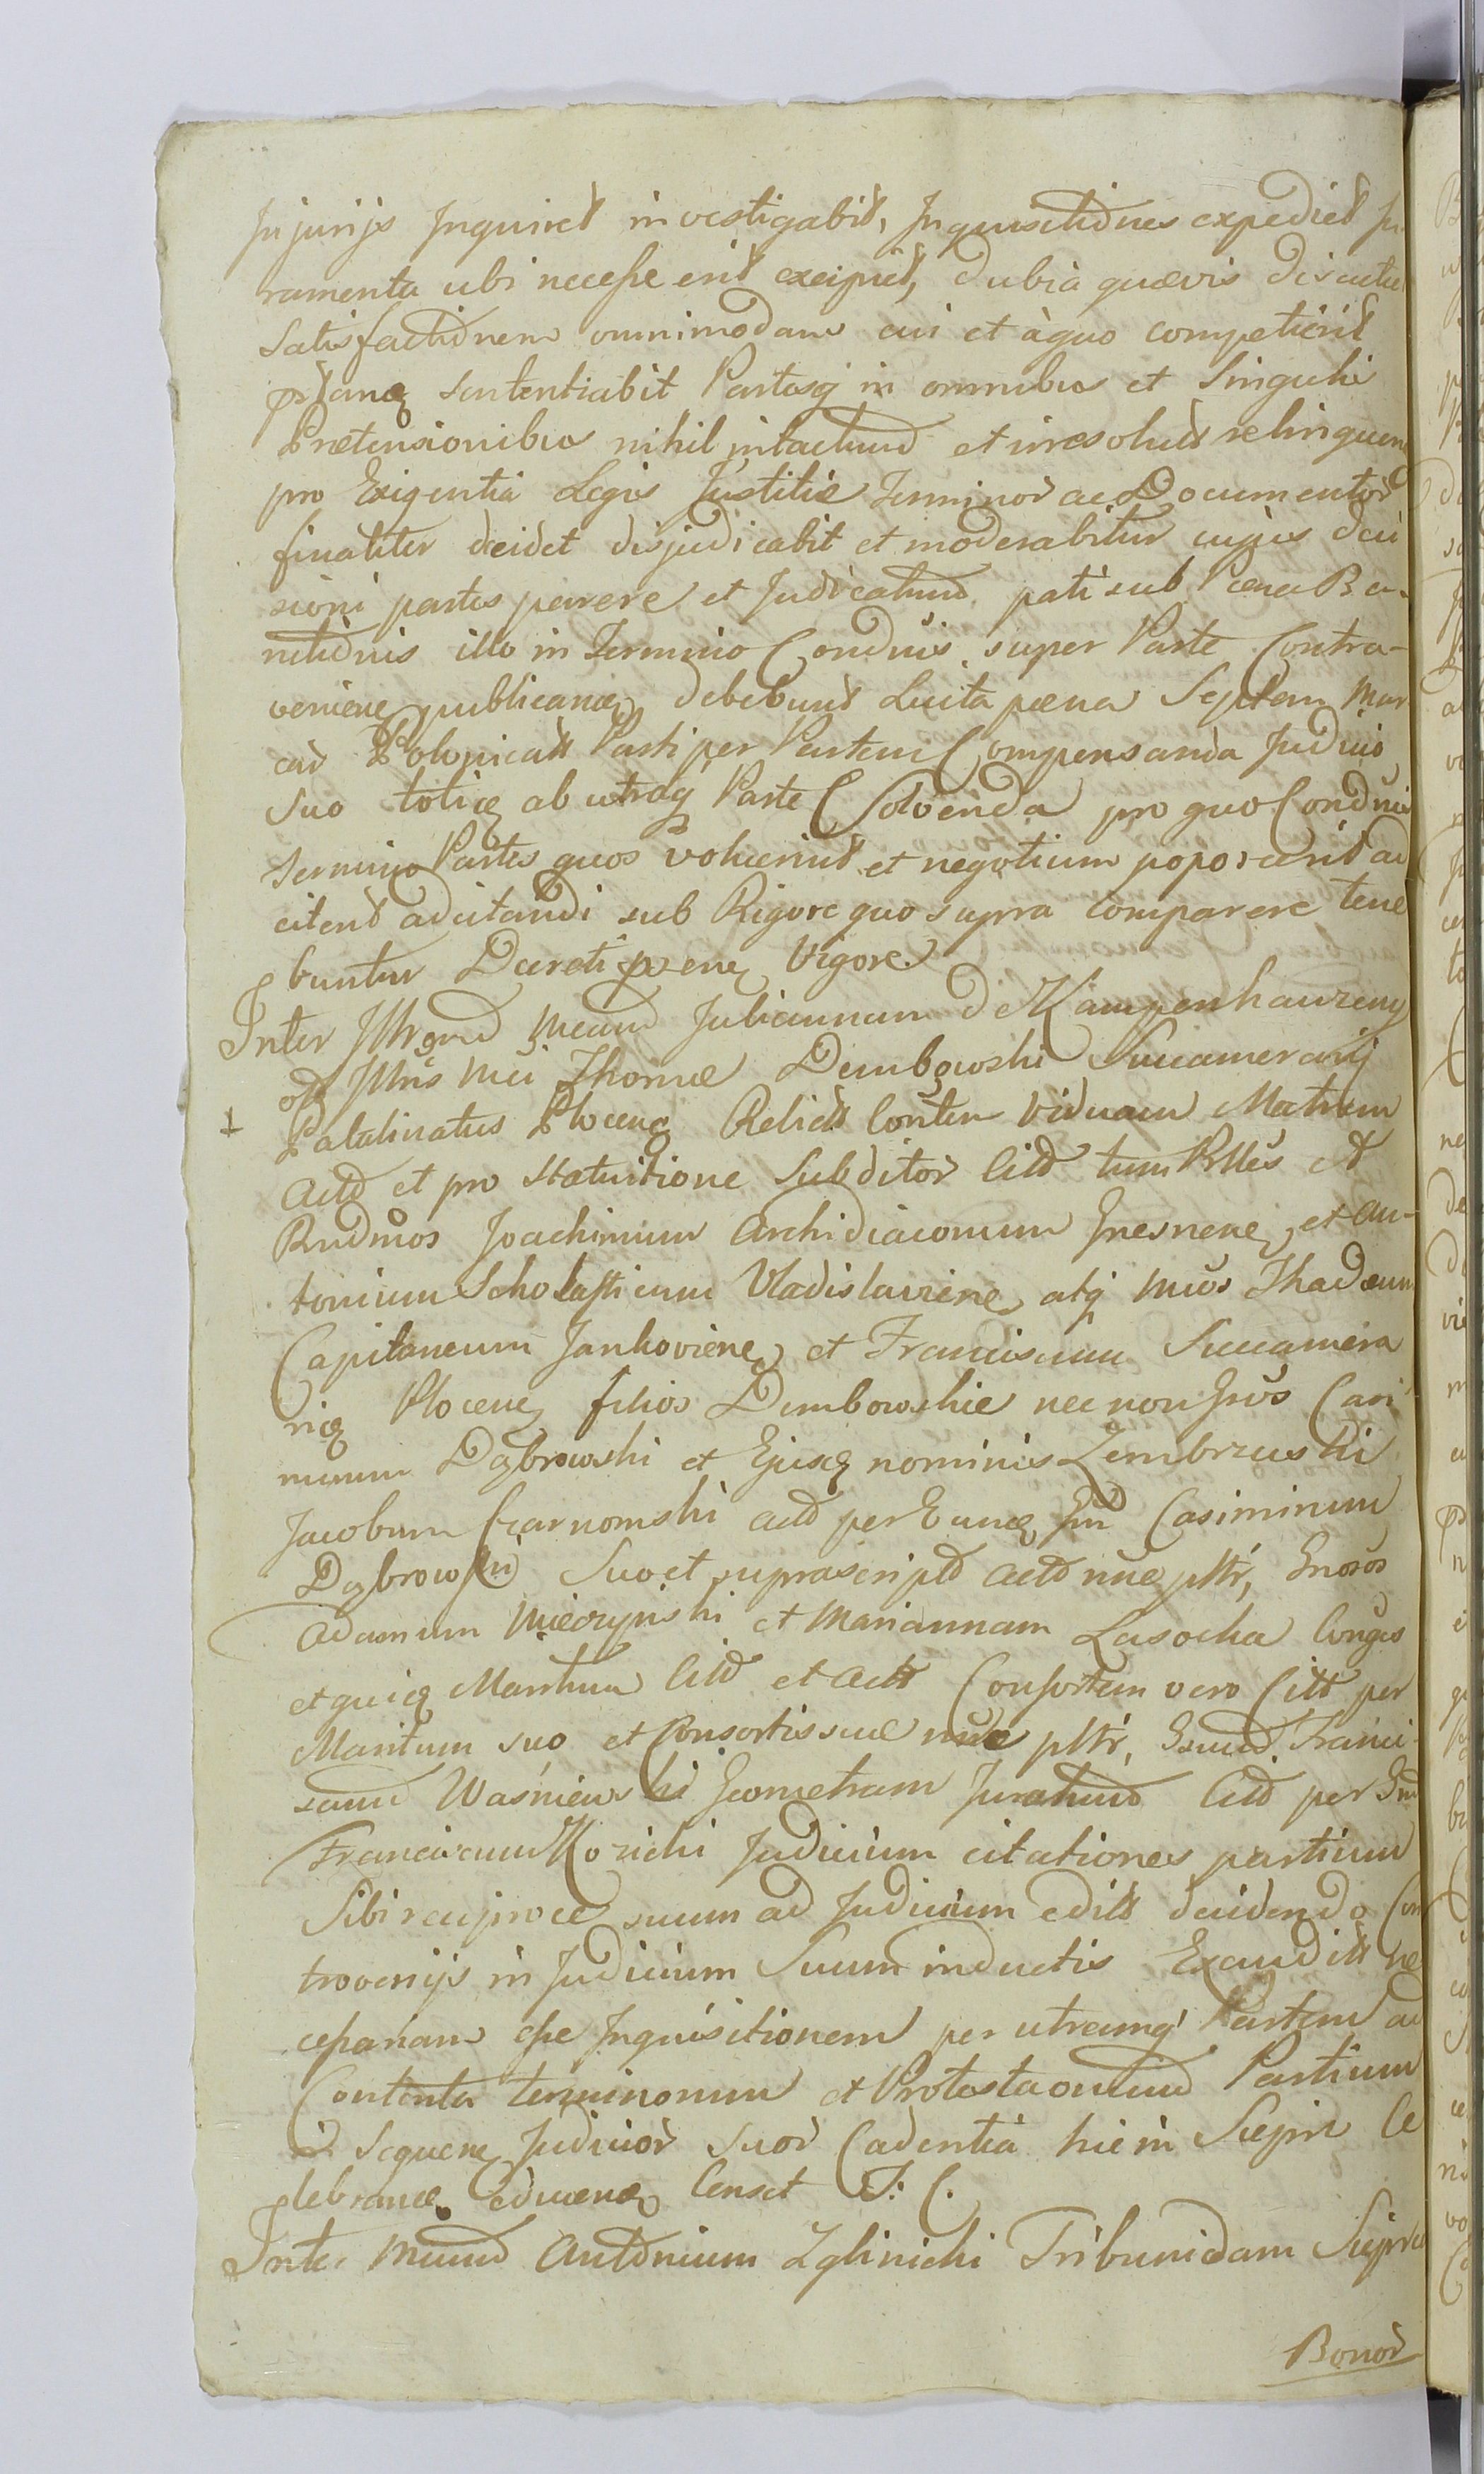 Injurijs Inquiret investigabit, Inquisitiones expediet Ju
ramenta ubi necesse erit excipiet, dubia quævis discutiet
Satisfactionem omnimodam cui et àquo competierit
sententiabit Partesq in omnibus et Singulis
Prætensionibus nihil intactum et irresolut relinquen
pro Exigentia Legis Justitiæ Terminor ac Documentor
finaliter decidet disjudicabit et moderabitur cujus deci
sioni partes parere et Judicatum pati sub Pœna Ba-
nitionis illo in Termino Condnis super Parte Contra-
venien publicanda debebunt Luita pœna Septem Mar
car Polonicalt Parti per Partem Compensanda Judicio
Suo toties ab utraq Parte Solvenda pro quo Condnis
Termino Partes quos voluerint et negotium poposcerit ad
citent adcitandi sub Rigore quo supra comparere tene
buntur Decreti præsen Vigore.
Inter Illrem Mcam Juliannam de Kampenhauzeny
olim Illris Mci Thomæ Dembowski Succamerarij
Palatinatus Plocen Relict Conten Viduam Matrem
Act et pro Statuitione Subditor Cit tum Illes et
Rndmos Joachimum Archidiaconum Gnesnen et An-
tonium Scholasticum Vladislavien atq Mcos Thadæum
Capitaneum Jankovien et Franciscum Succamera
rios Plocen filios Dembowskie nec non Gnos Casi
mirum Dąbrowski et Ejusd nominis Zembrzuski
Jacobum Czarnomski act per Eund Gnm Casimirum
Dąbrowski Suo et suprascript Act nne pltr, Gnosos
Adamum Mieczynski et Mariannam Lasocka Conges
et quid Maritum Cit et Act Consortem vero Citt per
Maritum suo et Consortis suæ nne pltr, Gnum Franci
scum Waśniewski Geometram Juratum Cit per Gnm
Franciscum Kozicki Judicium citationes partium
Sibi reciproce suum ad Judicium edilt decidendo Con
troversijs in Judicium Suum inductis Exauditt ne
cessariam esse Inquisitionem per utramq Partem ad
Contenta terminorum et Protestaonum Partium
in Sequen Judicior Suor Cadentia hic in Sieprc Ce
lebranda educend Censet J: C.
Inter Mcum Antonium Zglinicki Tribunidam Sieprc
Bonor